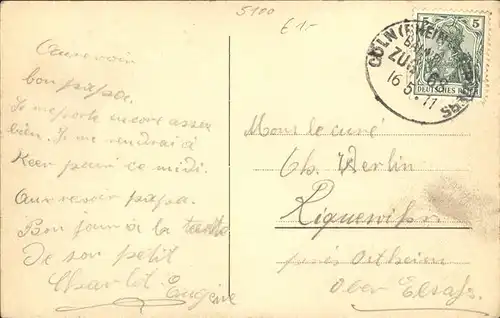 5100
€ 1.-
Aurevoir
bon papa.
Je me porte encore assez
bien. Je me rendrai à
Keer pour ce midi.
Aurevoir papa.
Bon jour à la tante
De son petit
Charlot. Eugène
CÖLN (RHEIN)
BAHNP.
ZUG
16 5. 11
5 5
DEUTSCHES REICH
Mons le curé
Ch. Werlin
près Ostheim
Ober Elsass